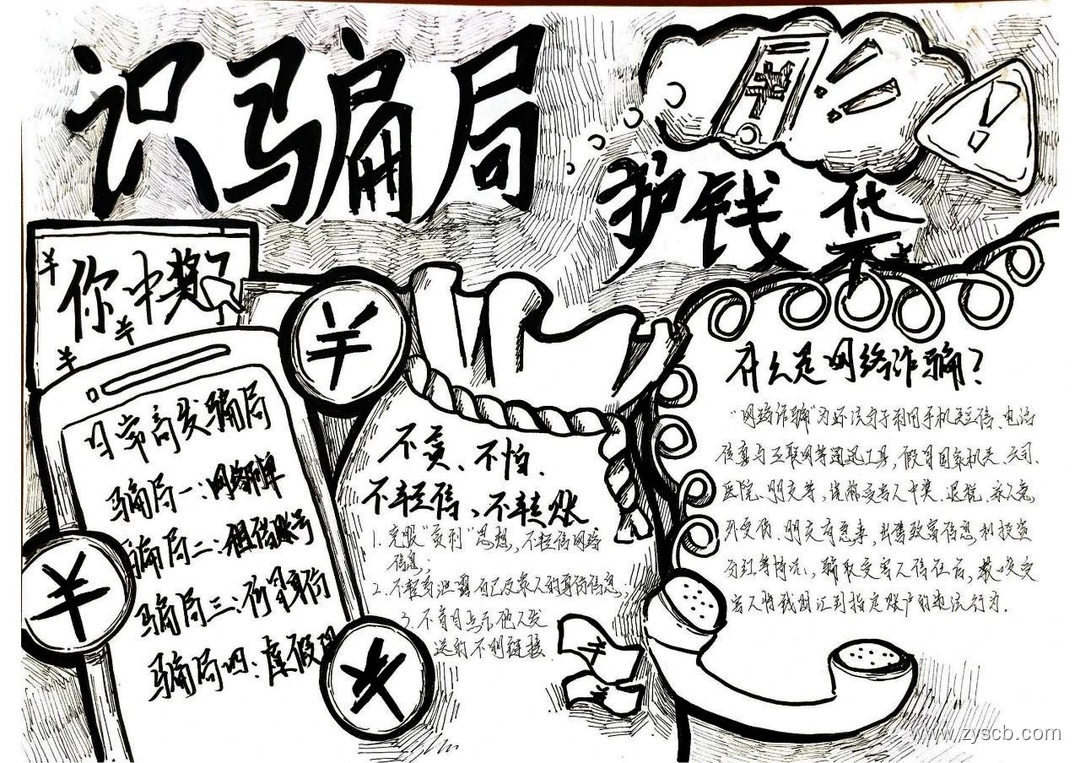 识骗局
护钱袋
诈
你中奖了
¥
¥
¥
¥
¥
¥
日常高发骗局
骗局一：网络刷单
骗局二：租借账号
骗局三：
骗局四：虚假
不贪、不怕、
不轻信、不转账
1. 克服“贪利”思想，不轻信网络
信息；
2. 不轻易泄露自己及家人的身份信息；
3. 不盲目点击他人发
送的不明链接
什么是网络诈骗？
“网络诈骗”为违法分子利用手机短信、电话
传真与互联网等通讯工具，假冒国家机关、公司
医院、朋友等，谎称受害人中奖、退税、家人意
外受伤、朋友有急事，出售致富信息、利投资
分红等情况，骗取受害人信任后，要求受
害人将钱财汇到指定账户的违法行为.
www.zyscb.com